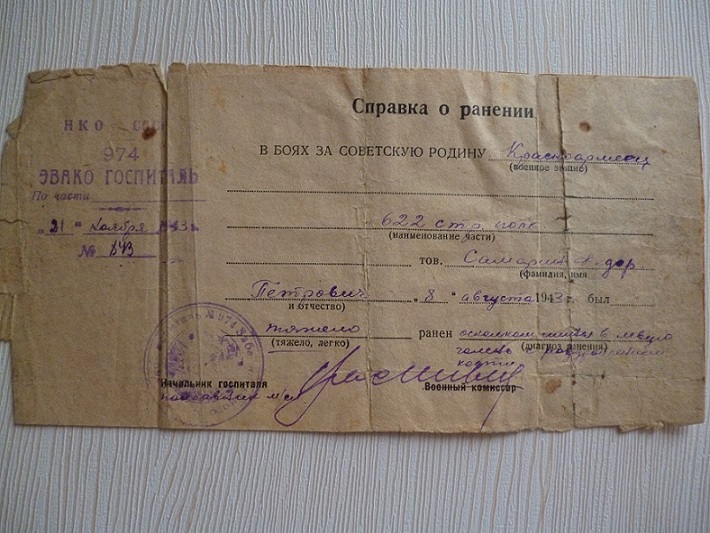 Справка о ранении
НКО
974
ЭВАКО ГОСПИТАЛЬ
По части
"21" ноября 1943 г.
№ 843
В БОЯХ ЗА СОВЕТСКУЮ РОДИНУ Красноармеец
(военное звание)
622 стр. полк
(наименование части)
тов. Самарин
(фамилия, имя
Петрович "8" августа 1943 г. был
и отчество)
тяжело ранен осколком мины в левую
(тяжело, легко) (диагноз ранения)
голень с
кости
Начальник госпиталя Военный комиссар